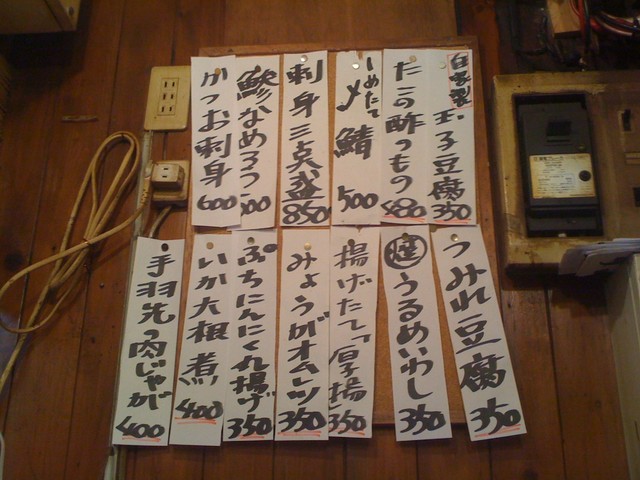 自家製 玉子豆腐 350
たこの酢のもの 480
しめたて 〆鯖 500
刺身三点盛 850
鯵なめろう
かつお刺身 600
つみれ豆腐 350
うるめいわし 350
揚げたて厚揚 350
みょうがオムレツ 350
ぷちにんにく揚げ 350
いか大根煮 400
手羽先の肉じゃが 400